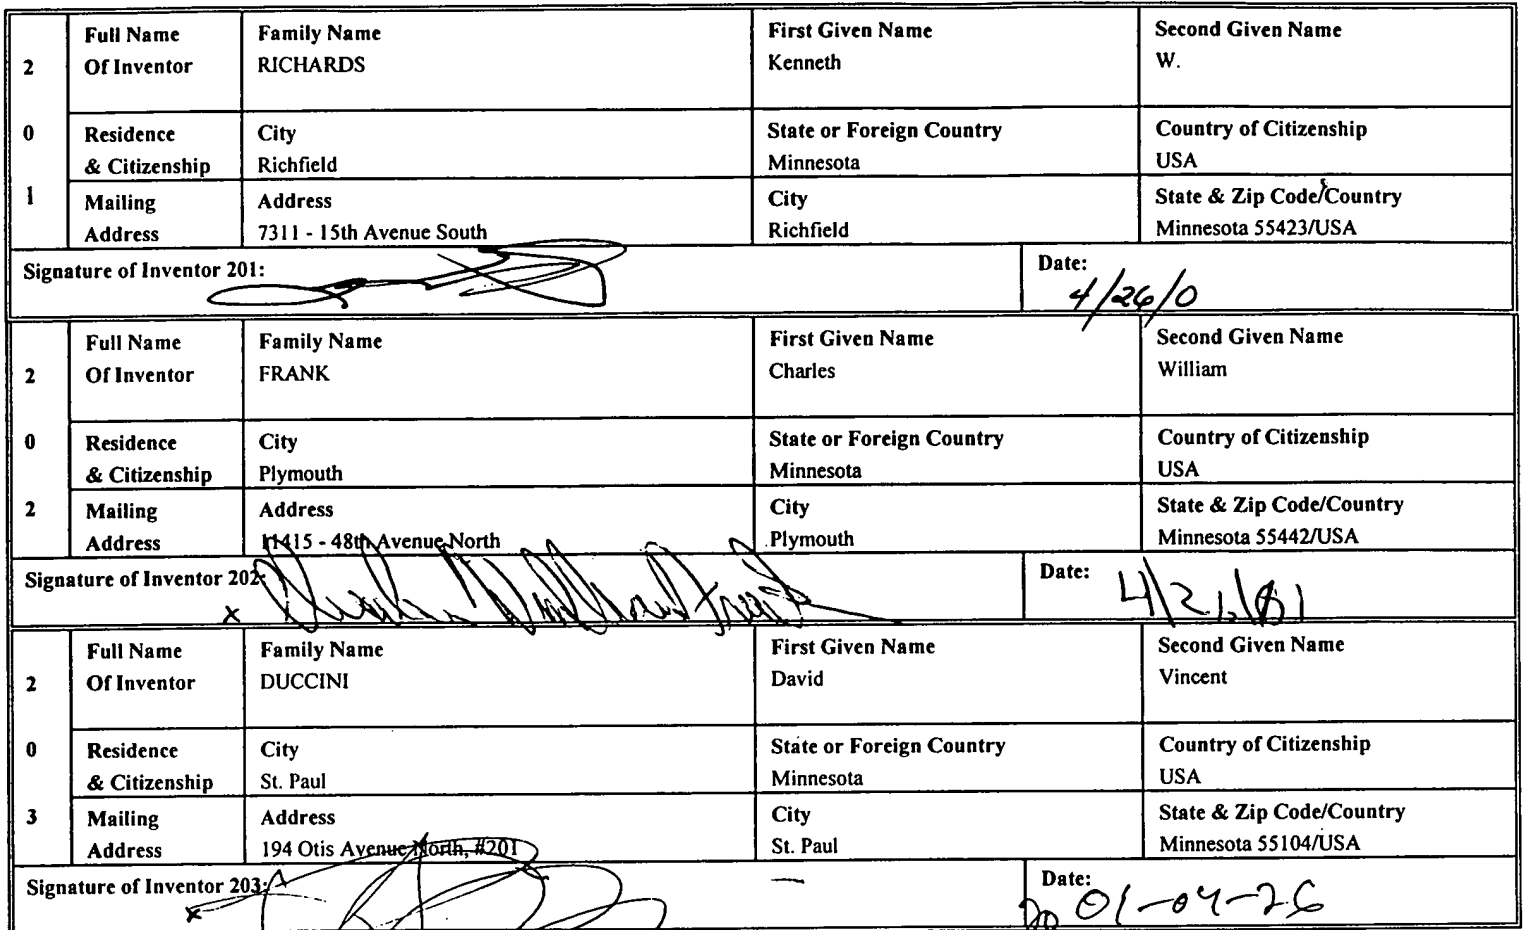 2 Full Name Of Inventor Family Name RICHARDS First Given Name Kenneth Second Given Name W.
0 Residence & Citizenship City Richfield State or Foreign Country Minnesota Country of Citizenship USA
1 Mailing Address Address 7311 - 15th Avenue South City Richfield State & Zip Code/Country Minnesota 55423/USA
Signature of Inventor 201: Date: 4/26/0
2 Full Name Of Inventor Family Name FRANK First Given Name Charles Second Given Name William
0 Residence & Citizenship City Plymouth State or Foreign Country Minnesota Country of Citizenship USA
2 Mailing Address Address 11415 - 48th Avenue North City Plymouth State & Zip Code/Country Minnesota 55442/USA
Signature of Inventor 202: x Charles William Frank Date:
2 Full Name Of Inventor Family Name DUCCINI First Given Name David Second Given Name Vincent
0 Residence & Citizenship City St. Paul State or Foreign Country Minnesota Country of Citizenship USA
3 Mailing Address Address 194 Otis Avenue North, #201 City St. Paul State & Zip Code/Country Minnesota 55104/USA
Signature of Inventor 203: x Date: 2001-04-26